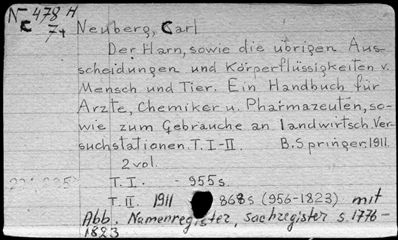 N 478 H
c 74
Neuberg, Carl
Der Harn, sowie die übrigen Aus-
scheidungen und Körperflüssigkeiten v.
Mensch und Tier. Ein Handbuch für
Arzte, Chemiker u. Pharmazeuten, so-
wie zum Gebrauche an landwirtsch. Ver-
suchstationen. T. I-II. B. Springer. 1911.
2 vol.
T. I. - 955 s.
T. II. 1911 868 s (956-1823) mit
Abb. Namenregister, sachregister s. 1776-
1823